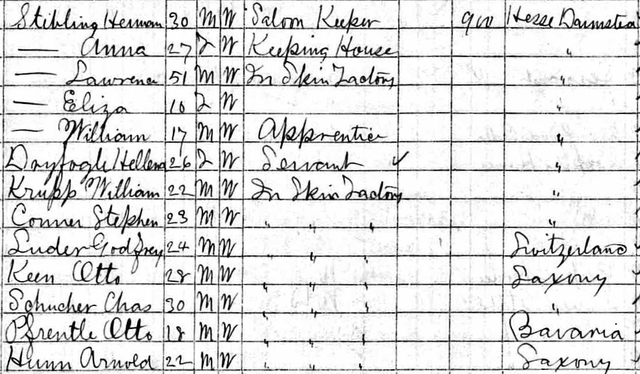 Stibling Herman 30 M W Saloon Keeper 900 Hesse Darmsta
— Anna 27 F W Keeping House "
— Lawrence 51 M W In Skin Factory "
— Eliza 10 F W "
— William 17 M W Apprentice "
Dayfogh Hellena 26 F W Servant ✓ "
Krupp William 22 M W In Skin Factory "
Conner Stephen 23 M W " " " "
Luder Godfrey 24 M W " " " Switzerland
Keen Otto 28 M W " " " Saxony
Schucher Chas 30 M W " " " "
Pfrentle Otto 18 M W " " " Bavaria
Hunn Arnold 22 M W " " " Saxony